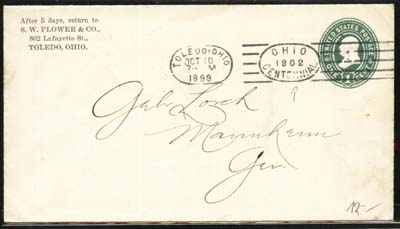 After 5 days, return to
S. W. FLOWER & CO.,
802 Lafayette St.,
TOLEDO, OHIO.
TOLEDO-OHIO
OCT 10
M
1899
OHIO
1902
CENTENNIAL
UNITED STATES POSTAGE
Gebr. Lorch
Mannheim
Ger.
12.-